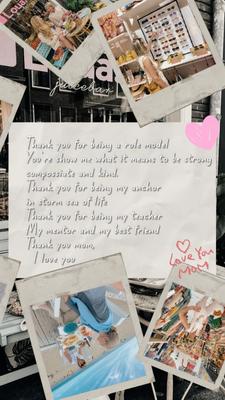 Loua
juicebar
Thank you for being a role model
You're show me what it means to be strong
compossiate and kind.
Thank you for being my anchor
in storm sea of life
Thank you for being my teacher
My mentor and my best friend
Thank you mom,
I love you
Love You
MOM